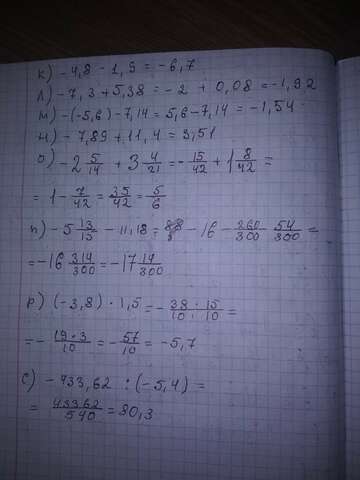 к) -4,8 - 1,9 = -6,7
л) -7,3 + 5,38 = -2 + 0,08 = -1,92
м) -(-5,6) - 7,14 = 5,6 - 7,14 = -1,54
н) -7,89 + 11,4 = 3,51
о) -2 5/14 + 3 4/21 = -15/42 + 1 8/42 =
= 1 - 7/42 = 35/42 = 5/6
п) -5 13/15 - 11,18 = -16 - 260/300 54/300 =
= -16 314/300 = -17 14/300
р) (-3,8) · 1,5 = - 38 · 15/10 · 10 =
= - 19 · 3/10 = - 57/10 = -5,7
с) -433,62 : (-5,4) =
= 43362/540 = 80,3